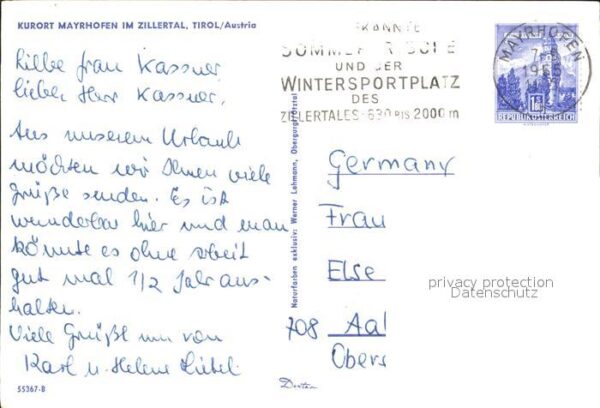 KURORT MAYRHOFEN IM ZILLERTAL, TIROL/Austria
liebe Frau Kassner,
lieber Herr Kassner,
Aus unserem Urlaub
möchten wir Ihnen viele
Grüße senden. Es ist
wunderbar hier und man
könnte es ohne Arbeit
gut mal 1/2 Jahr aus-
halten.
Viele Grüße nun von
Karl u. Helene
55267-B
Naturfarben exklusiv: Werner Lehmann, Obergurgl/Ötztal
KANNTE
SOMMER
UND DER
WINTERSPORTPLATZ
DES
ZILLERTALES · 630 BIS 2000 m
MAYRHOFEN
REPUBLIK ÖSTERREICH
Germany
Frau
Else
708 Aal
Obers
privacy protection
Datenschutz